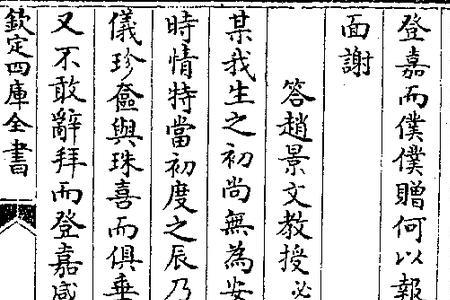 登嘉而僕僕贈何以報
面謝
答趙景文教授必
某我生之初尚無為安
時情特當初度之辰乃
儀珍奩與珠喜而俱垂
又不敢辭拜而登嘉咸
欽定四庫全書